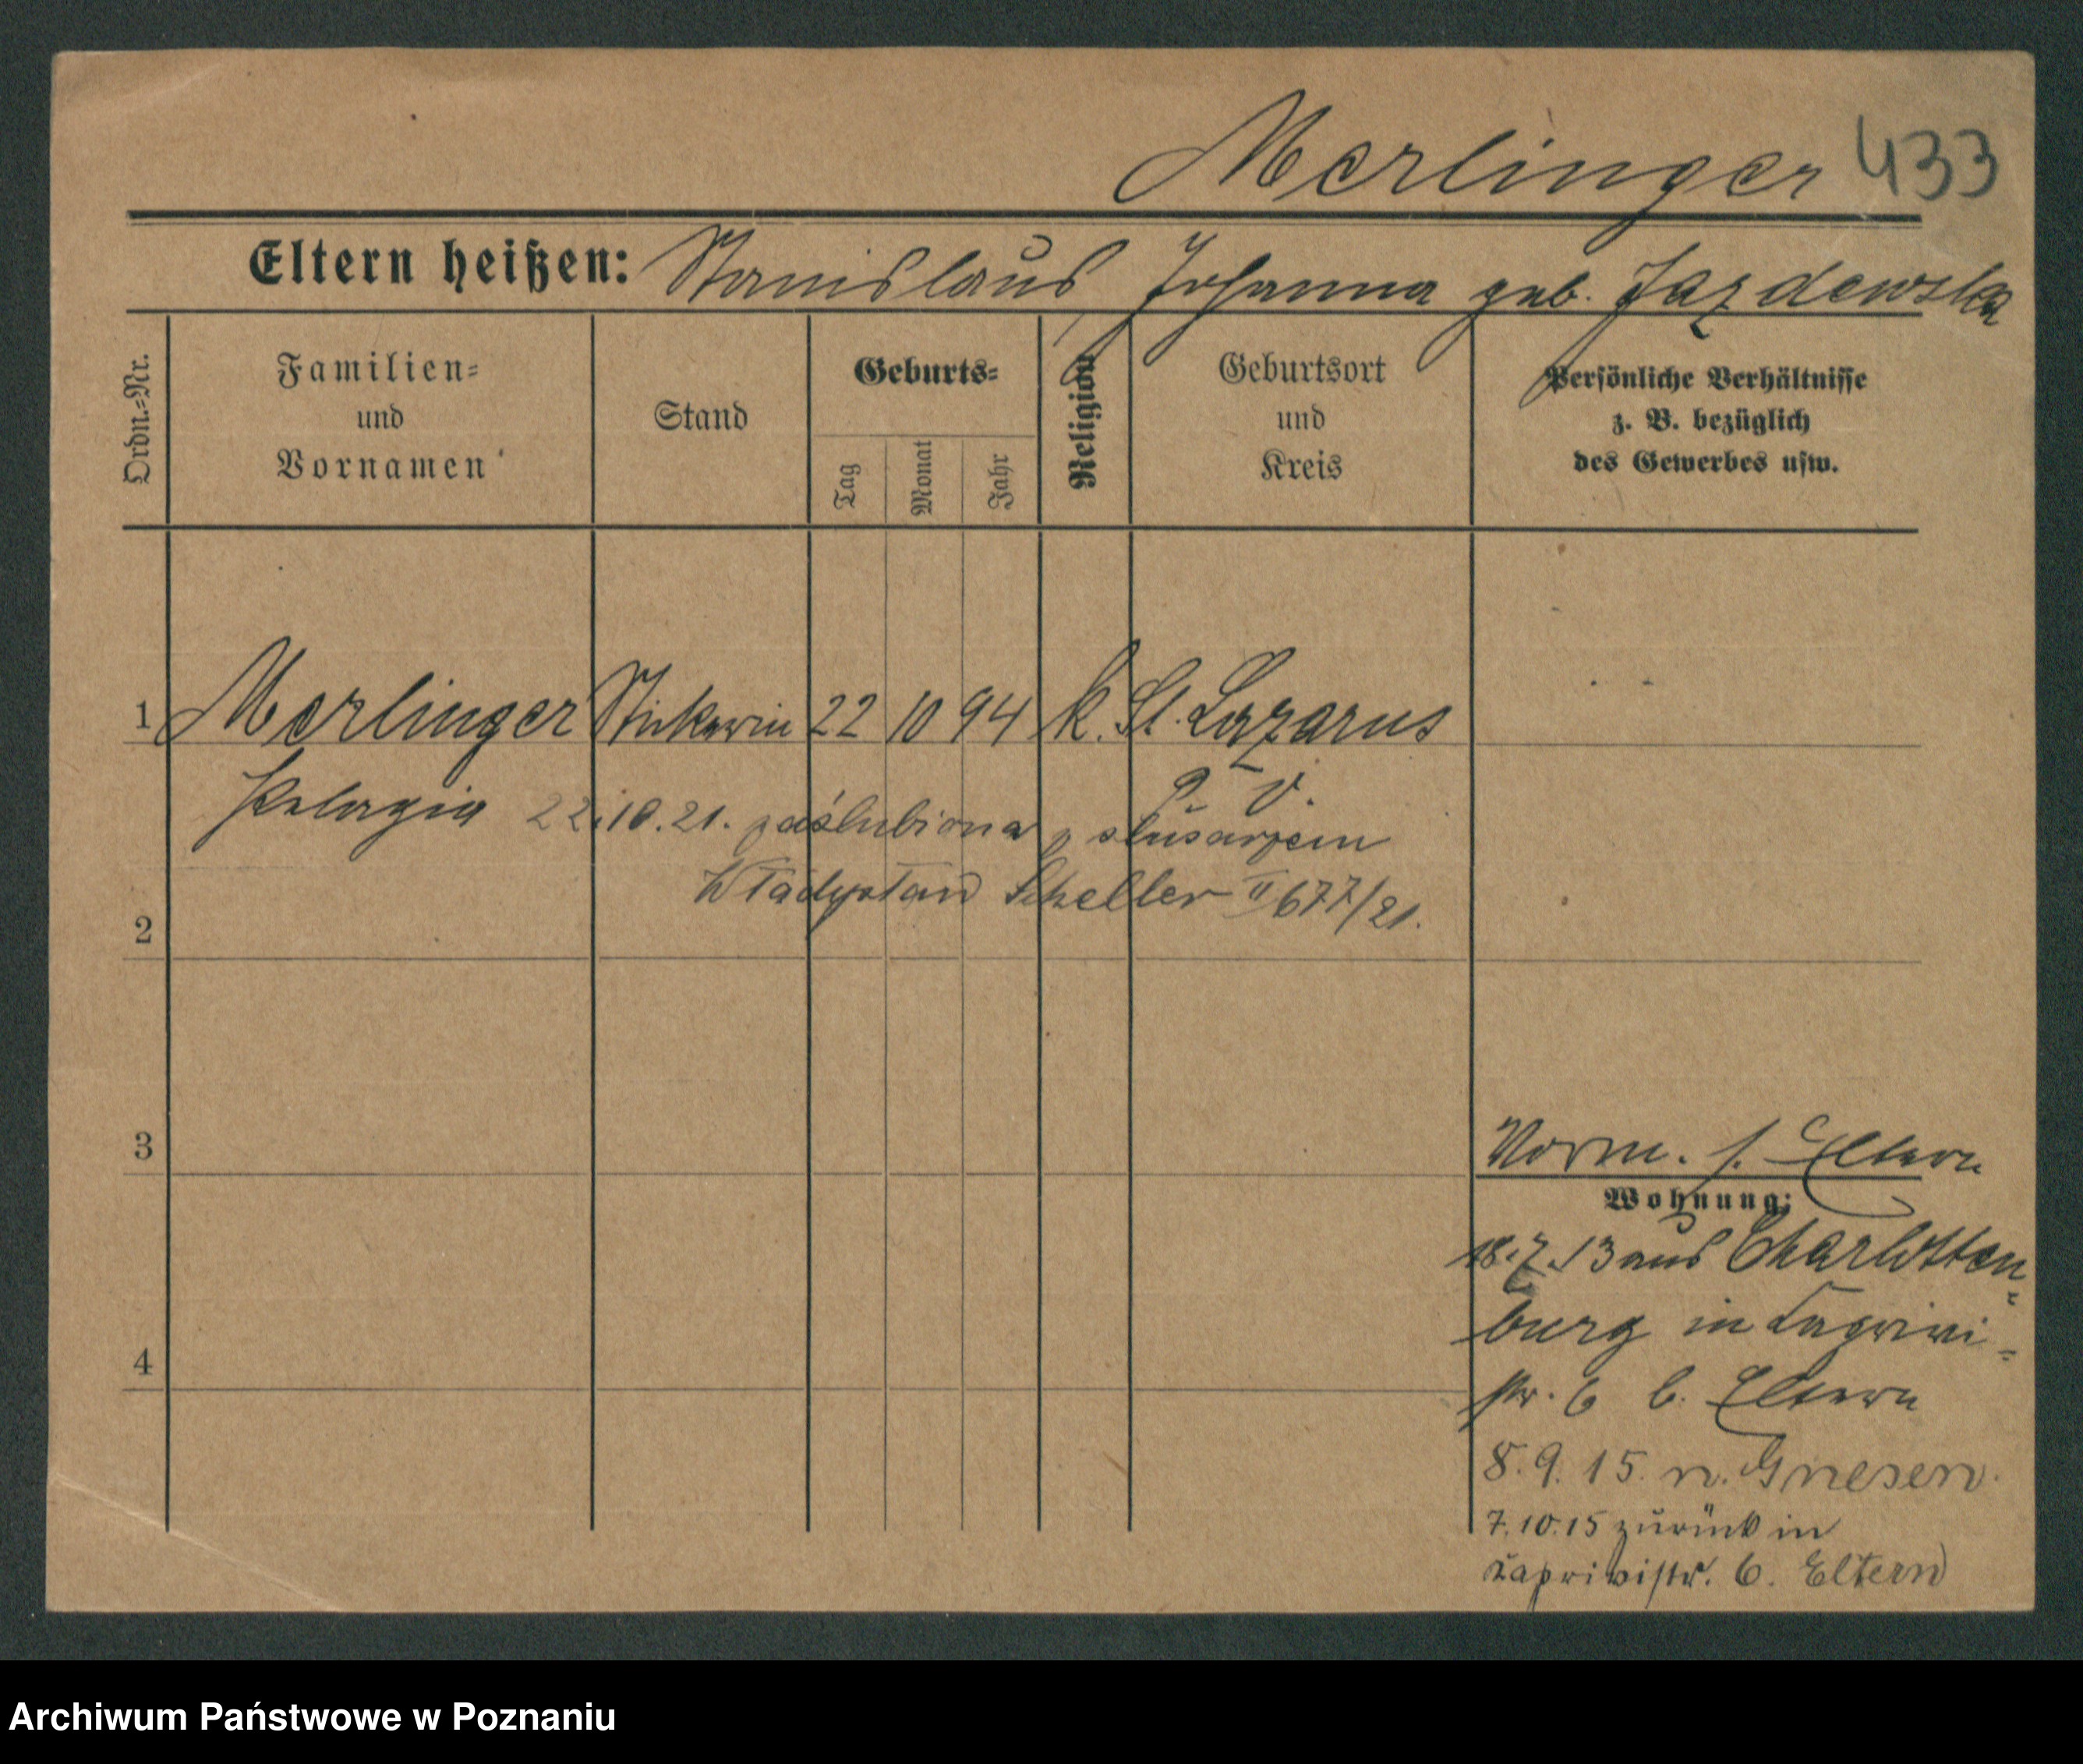 Merlinger 433
Eltern heißen: Stanislaus Johanna geb. Jazdewska
Ordn.=Nr.
Familien=
und
Vornamen
Stand
Geburts=
Tag
Monat
Jahr
Religion
Geburtsort
und
Kreis
Persönliche Verhältnisse
z. B. bezüglich
des Gewerbes usw.
1 Merlinger 22 10 94 k. St. Lazarus
Pelagia
22.10.21. zaślubiona z ślusarzem
Władysław Scheller II 677/21.
2
3
4
Vorm. s. Eltern
Wohnung:
18.7.13 aus Charlotten-
burg in Caprivi=
str. 6 b. Eltern
8.9.15. n. Gnesen.
7.10.15 zurück in
Caprivistr. 6. Eltern
Archiwum Państwowe w Poznaniu